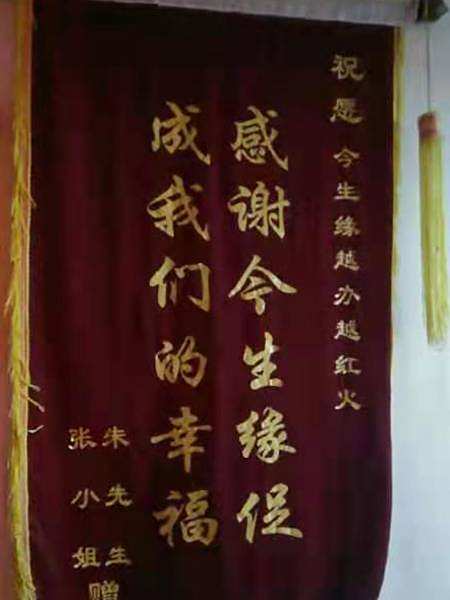 祝愿 今生缘越办越红火
感谢今生缘促
成我们的幸福
朱先生
张小姐
赠